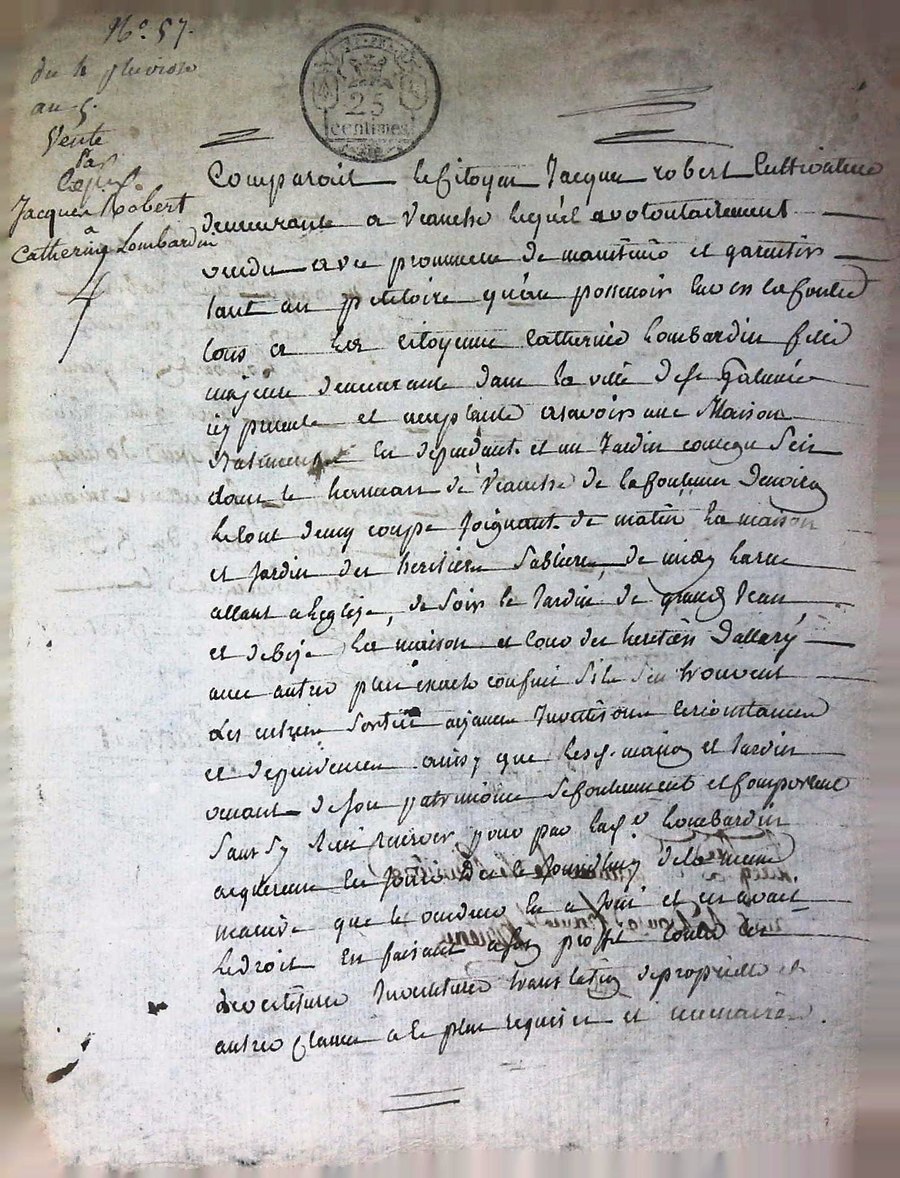 N°. 57.
du 4 pluviose
an 5.
Vente
Par
Jacques Robert
a
Catherine Lombardin
4
25
centimes
Comparait le Citoyen Jacques robert Cultivateur
demeurant a Veauche lequel a volontairement
vendu avec promesse de maintenir et garentir
tant au petitoire qu'au possessoir envers et contre
tous a la citoyenne Catherine Lombardin fille
majeure demeurante dans la ville de st Galmier
icy presente et acceptante asavoir une Maison
Batiment en dependant et un Jardin contigu Scis
dans le hameau de Veauche de la contenue denviron
le tout demy coupe Joignant de matin la maison
et Jardin des heritiers Sabliere, de midy la rue
allant a leglise, de soir le Jardin de grand Jean
et de bize la maison et cour des heritiers Dallary
avec autres plus exacts confins S'ils s'en trouvent
Les entrées Sorties aisances circonstances
et dependences ainsy que lesd. maison et Jardin
venant de son patrimoine Se contiennent et Comportent
Sans y rien reserver pour par lad. Lombardin
acquereuse en Jouir des ce Jourdhuy de la meme
maniere que le vendeur en a Joui et en avait
le droit En faisant a son profit toutes les
devetitures Investitures translation de propriété et
autres clauses a ce plus requises et necessaires.